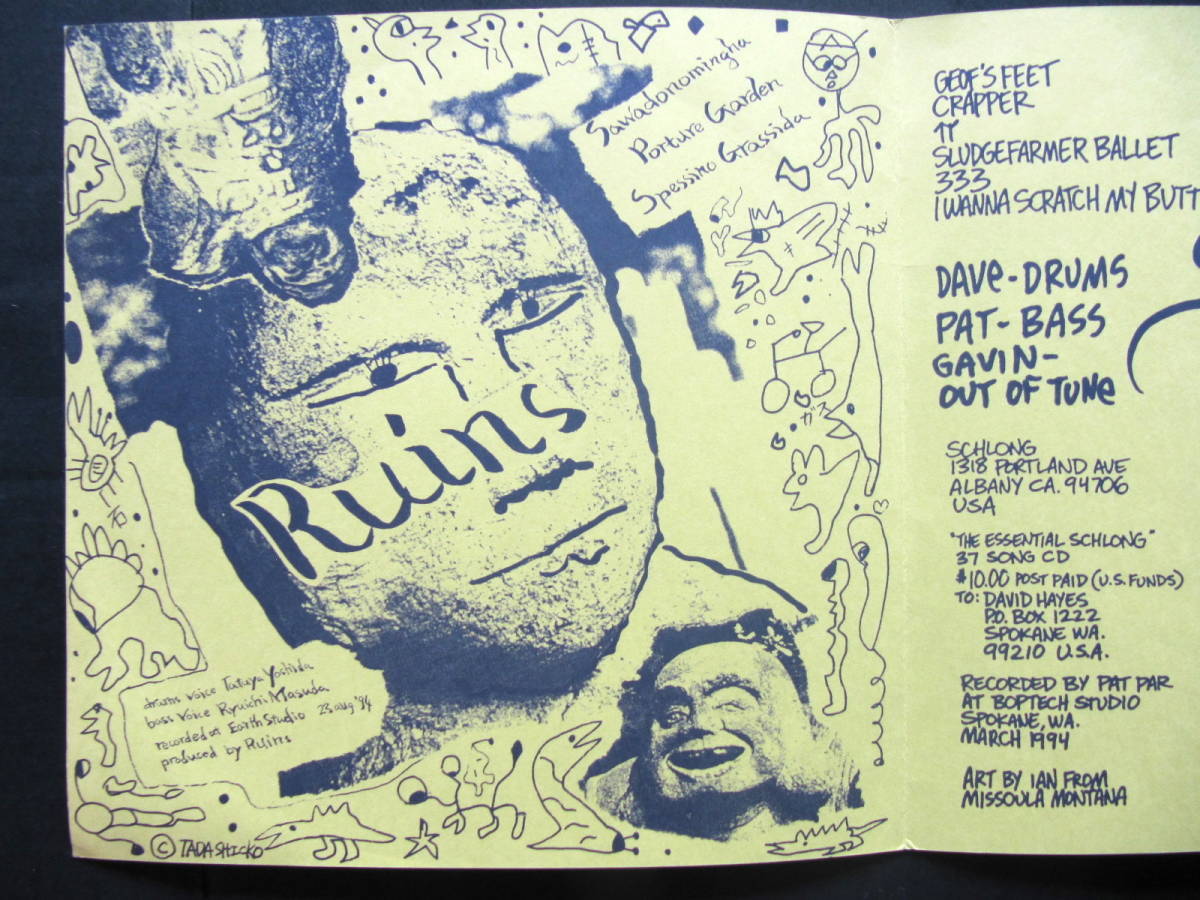 Sawadonomingha
Porture Garden
Spessimo Grassida
Ruins
drums voice Tatuya Yoshida
bass voice Ryuichi Masuda
recorded at Earth Studio 23 aug '94
produced by Ruins
© TADASHICKO
GEOF'S FEET
CRAPPER
π
SLUDGEFARMER BALLET
333
I WANNA SCRATCH MY BUTT
DAVE-DRUMS
PAT-BASS
GAVIN-
OUT OF TUNE
SCHLONG
1318 PORTLAND AVE
ALBANY CA. 94706
USA
"THE ESSENTIAL SCHLONG"
37 SONG CD
$10.00 POST PAID (U.S. FUNDS)
TO: DAVID HAYES
P.O. BOX 1222
SPOKANE WA.
99210 U.S.A.
RECORDED BY PAT PAR
AT BOPTECH STUDIO
SPOKANE, WA.
MARCH 1994
ART BY IAN FROM
MISSOULA MONTANA